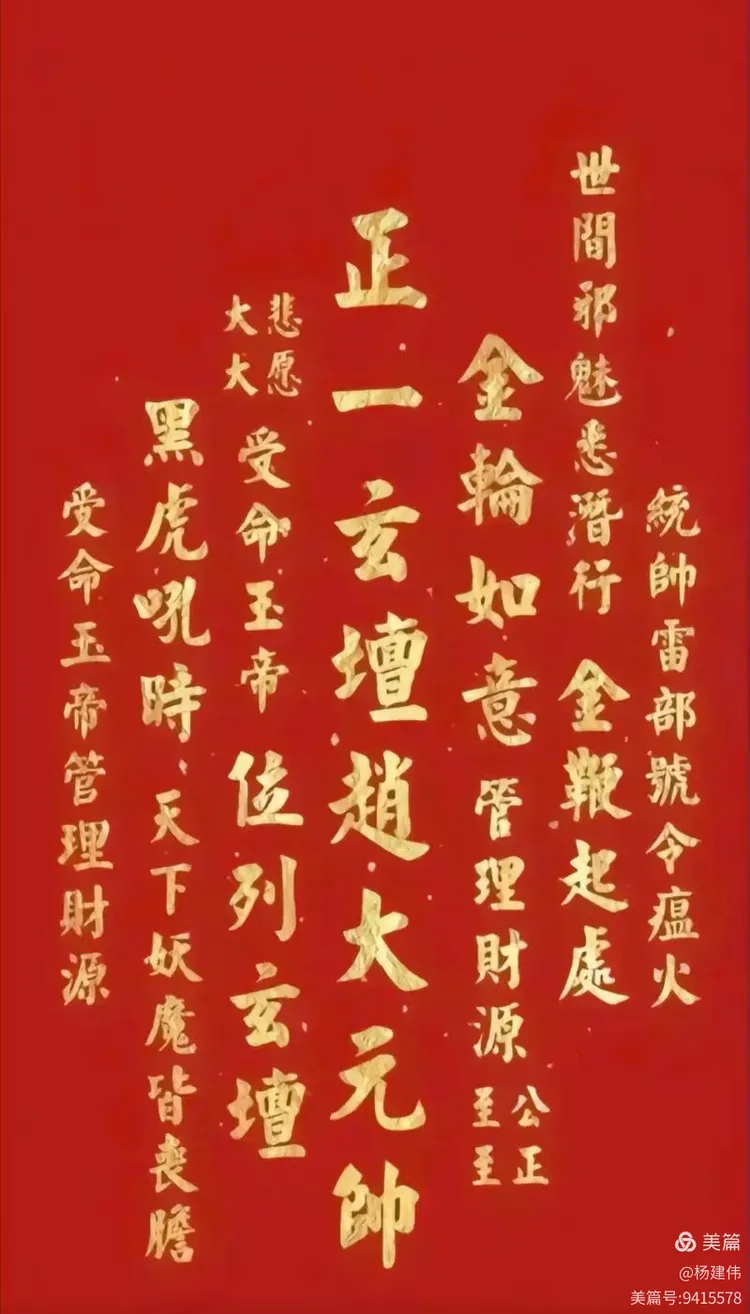 統帥雷部號令瘟火
世間邪魅悉潛行 金鞭起處
金輪如意 管理財源 至公 至正
正一玄壇趙大元帥
大悲 大愿 受命玉帝 位列玄壇
黑虎吼時 天下妖魔皆喪膽
受命玉帝管理財源
美篇
@杨建伟
美篇号:9415578